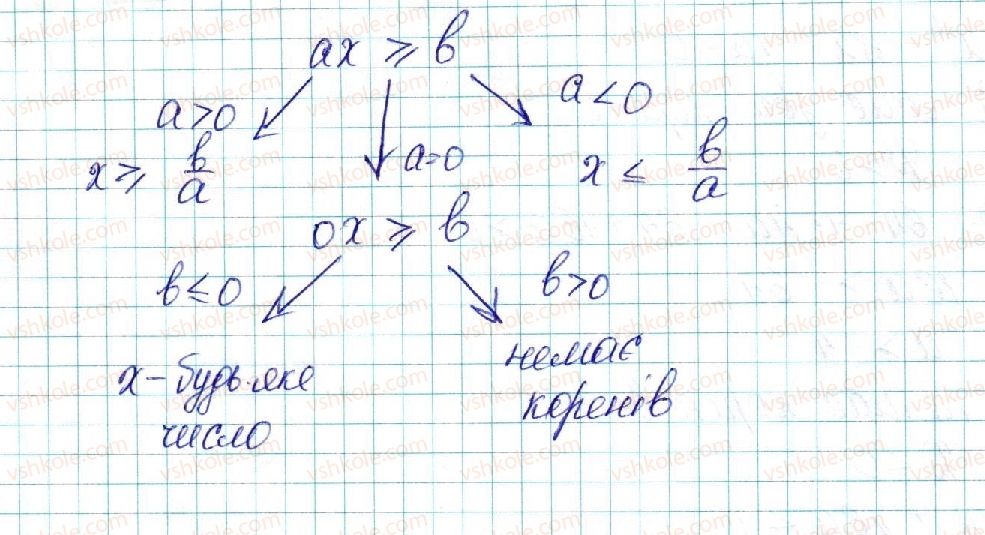 ax ⩾ b
a>0
a<0
x ⩾ b/a
a=0
x ≤ b/a
0x ⩾ b
b≤0
b>0
x – будь-яке
число
немає
коренів
vshkole.com